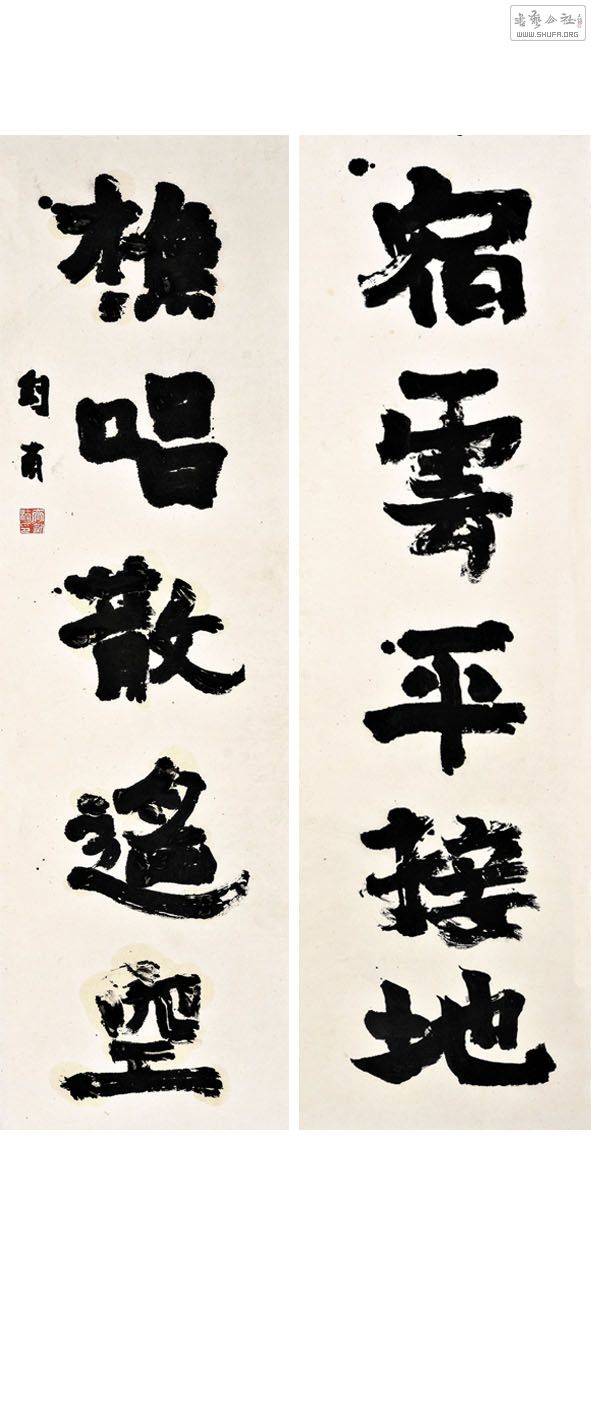 書藝公社
WWW.SHUFA.ORG
宿雲平接地
樵唱散遙空
甫